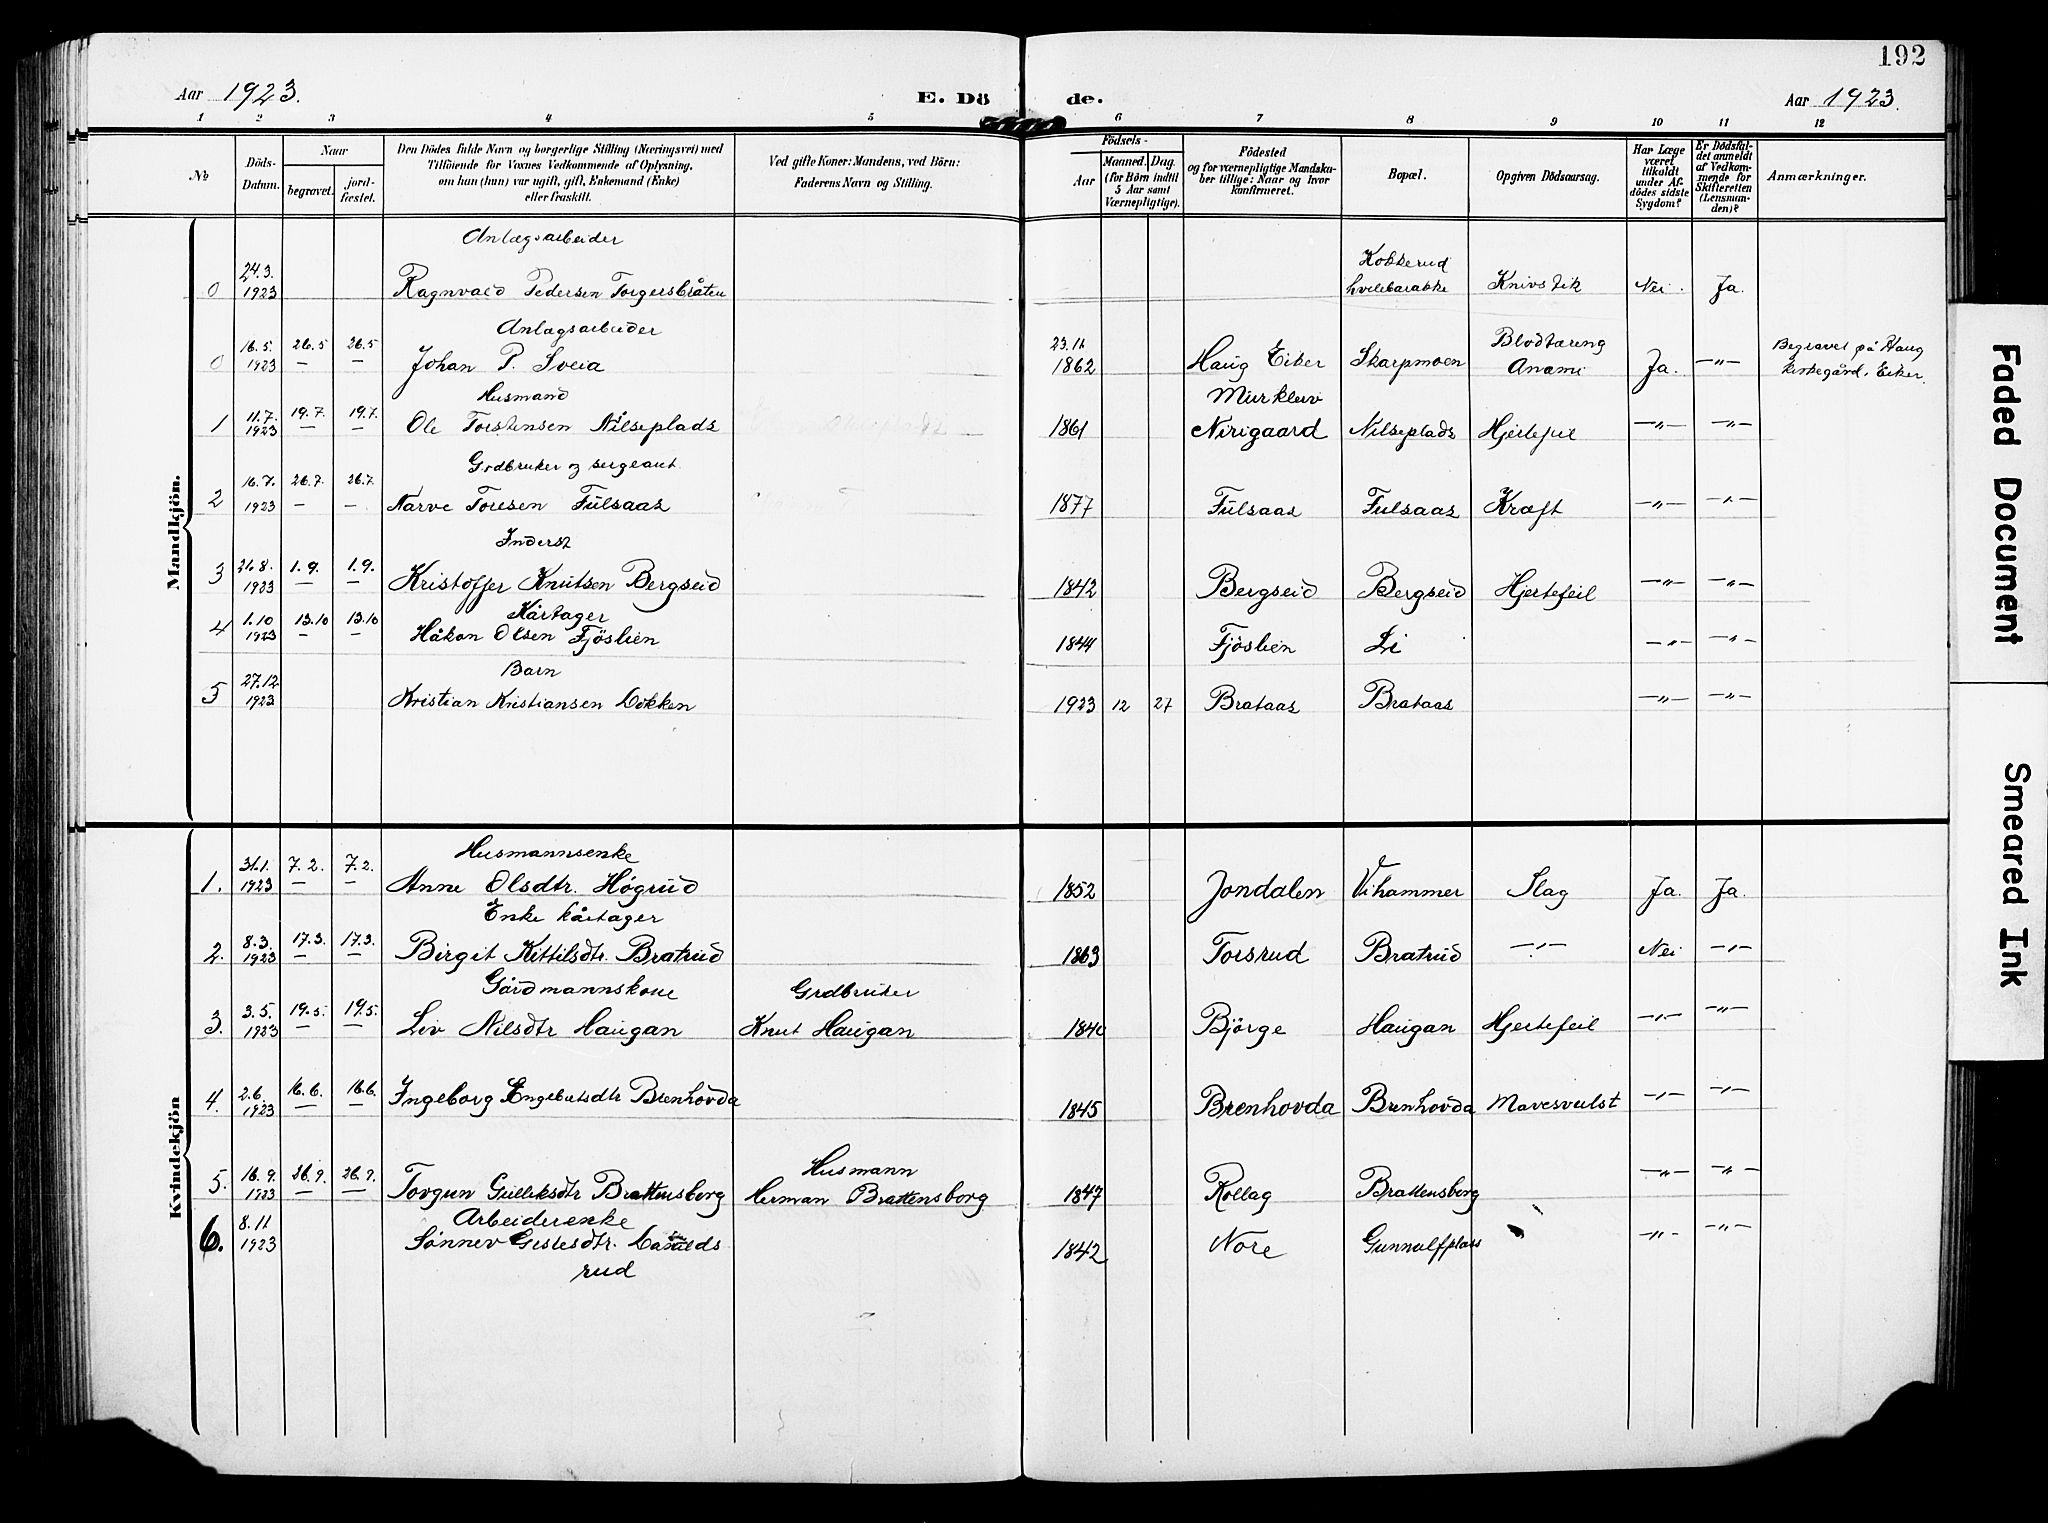 192
Aar 1923.
E. Dö de.
Aar 1923.
1 2 3 4 5 6 7 8 9 10 11 12
№
Döds-
Datum.
Naar
begravet.
jord-
fæstet.
Den Dödes fulde Navn og borgerlige Stilling (Næringsvei) med
Tilföiende for Voxnes Vedkommende af Oplysning,
om han (hun) var ugift, gift, Enkemand (Enke)
eller fraskilt.
Ved gifte Koner: Mandens, ved Börn:
Faderens Navn og Stilling.
Födsels-
Aar
Maaned. Dag.
(for Börn indtil
5 Aar samt
Værnepligtige).
Födested
og for værnepligtige Mandska-
ber tillige: Naar og hvor
konfirmeret.
Bopæl.
Opgiven Dödsaarsag.
Har Læge
været
tilkaldt
under Af-
dödes sidste
Sygdom?
Er Dödsfal-
det anmeldt
af Vedkom-
mende for
Skifteretten
(Lensman-
den)?
Anmærkninger.
Mandkjön.
Anlægsarbeider
0 24.3. 1923 Ragnvald Pedersen Torgersbråten Kokkerud hvilebarakke Knivstik Nei. Ja.
Anlægsarbeider
0 16.5. 1923 26.5 — 26.5 — Johan P. Sveia 23.11 1862 Haug Eiker Skarpmoen Blodtæring Anæmi Ja. —"— Begravet på Haug kirkegård, Eiker.
Husmand
1 11.7. 1923 19.7. — 19.7. — Ole Torstensen Nilseplads 1861 Nirigaard Nilseplads Hjertefeil —"— —"—
Grdbruker og sergeant.
2 16.7. 1923 26.7. — 26.7. — Narve Toresen Fulsaas 1877 Fulsaas Fulsaas Kræft —"— —"—
Inderst
3 21.8. 1923 1.9. — 1.9. — Kristoffer Knutsen Bergseid 1842 Bergseid Bergseid Hjertefeil —"— —"—
Kårtager
4 1.10 1923 13.10 — 13.10 — Håkon Olsen Fjöslien 1844 Fjöslien Li —"— —"—
Barn
5 27.12 1923 Kristian Kristiansen Løkken 1923 12 27 Brataas Brataas —"— —"—
Kvindekjön
Husmannsenke
1. 31.1. 1923 7.2. — 7.2. — Anne Olsdtr. Høgrud 1852 Jondalen Vihammer Slag Ja. Ja.
Enke kårtager
2. 8.3. 1923 17.3. — 17.3. — Birgit Kittilsdtr. Bratrud 1863 Torsrud Bratrud —"— Nei —"—
Gårdmannskone Grdbruker
3. 3.5. 1923 19.5. — 19.5. — Liv Nilsdtr Haugan Knut Haugan 1840 Bjørge Haugan Hjertefeil —"— —"—
4. 2.6. 1923 16.6. — 16.6. — Ingeborg Engebretsdtr Brenhovda 1845 Brenhovda Brenhovda Mavesvulst —"— —"—
Husmann
5. 16.9. 1923 26.9. — 26.9. — Torgun Gulliksdtr Brattensborg Herman Brattensborg 1847 Rollag Brattensborg —"— —"—
Arbeiderenke
6. 8.11 1923 Sønnev Gislesdtr. 1842 Nore Gunnulfplass —"— —"—
rud
Faded Document
Smeared Ink